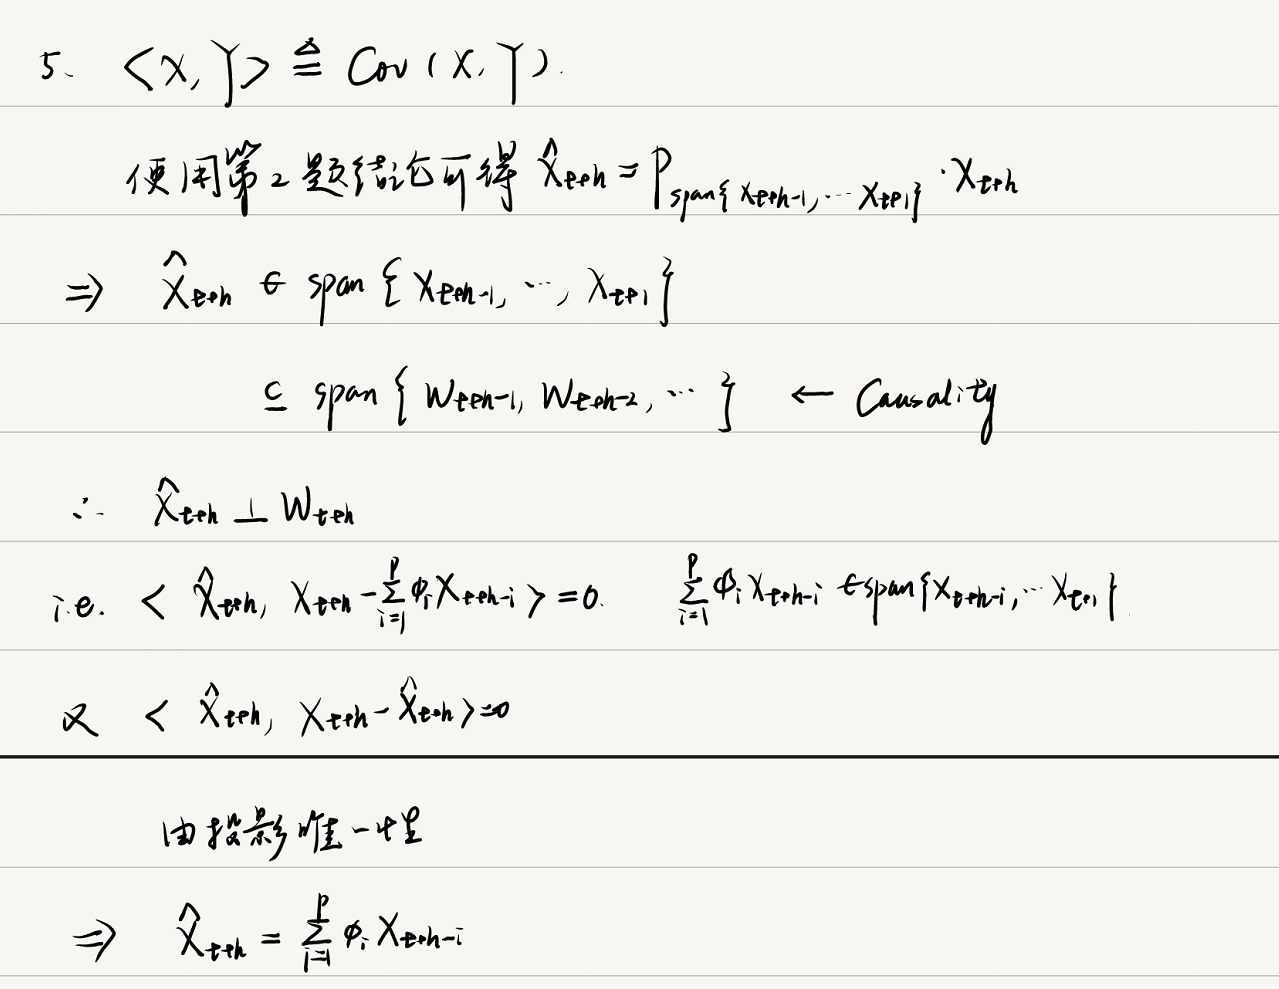 5. <X, Y> ≜ Cov(X, Y).
使用第2题结论可得 X̂_{t+h} = P_{span{X_{t+h-1}, ⋯ X_{t+1}}} · X_{t+h}
⇒ X̂_{t+h} ∈ span{X_{t+h-1}, ⋯, X_{t+1}}
⊆ span{W_{t+h-1}, W_{t+h-2}, ⋯} ← Causality
∴ X̂_{t+h} ⊥ W_{t+h}
i.e. <X̂_{t+h}, X_{t+h} - ∑_{i=1}^{p} ϕ_i X_{t+h-i}> = 0. ∑_{i=1}^{p} ϕ_i X_{t+h-i} ∈ span{X_{t+h-i}, ⋯ X_{t+1}}.
又 <X̂_{t+h}, X_{t+h} - X̂_{t+h}> = 0
由投影唯一性
⇒ X̂_{t+h} = ∑_{i=1}^{p} ϕ_i X_{t+h-i}